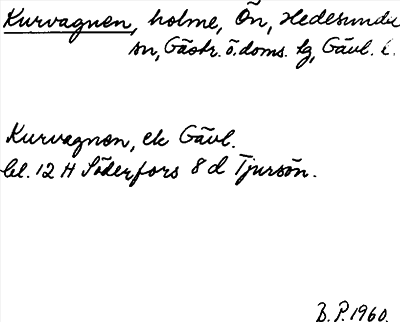 Kurvagnen, holme, Ön, Hedesunda
sn, Gästr. ö. doms. lg, Gävl. l.
Kurvagnen, ek Gävl.
bl. 12 H Söderfors 8 d Tjursön.
B. P. 1960.